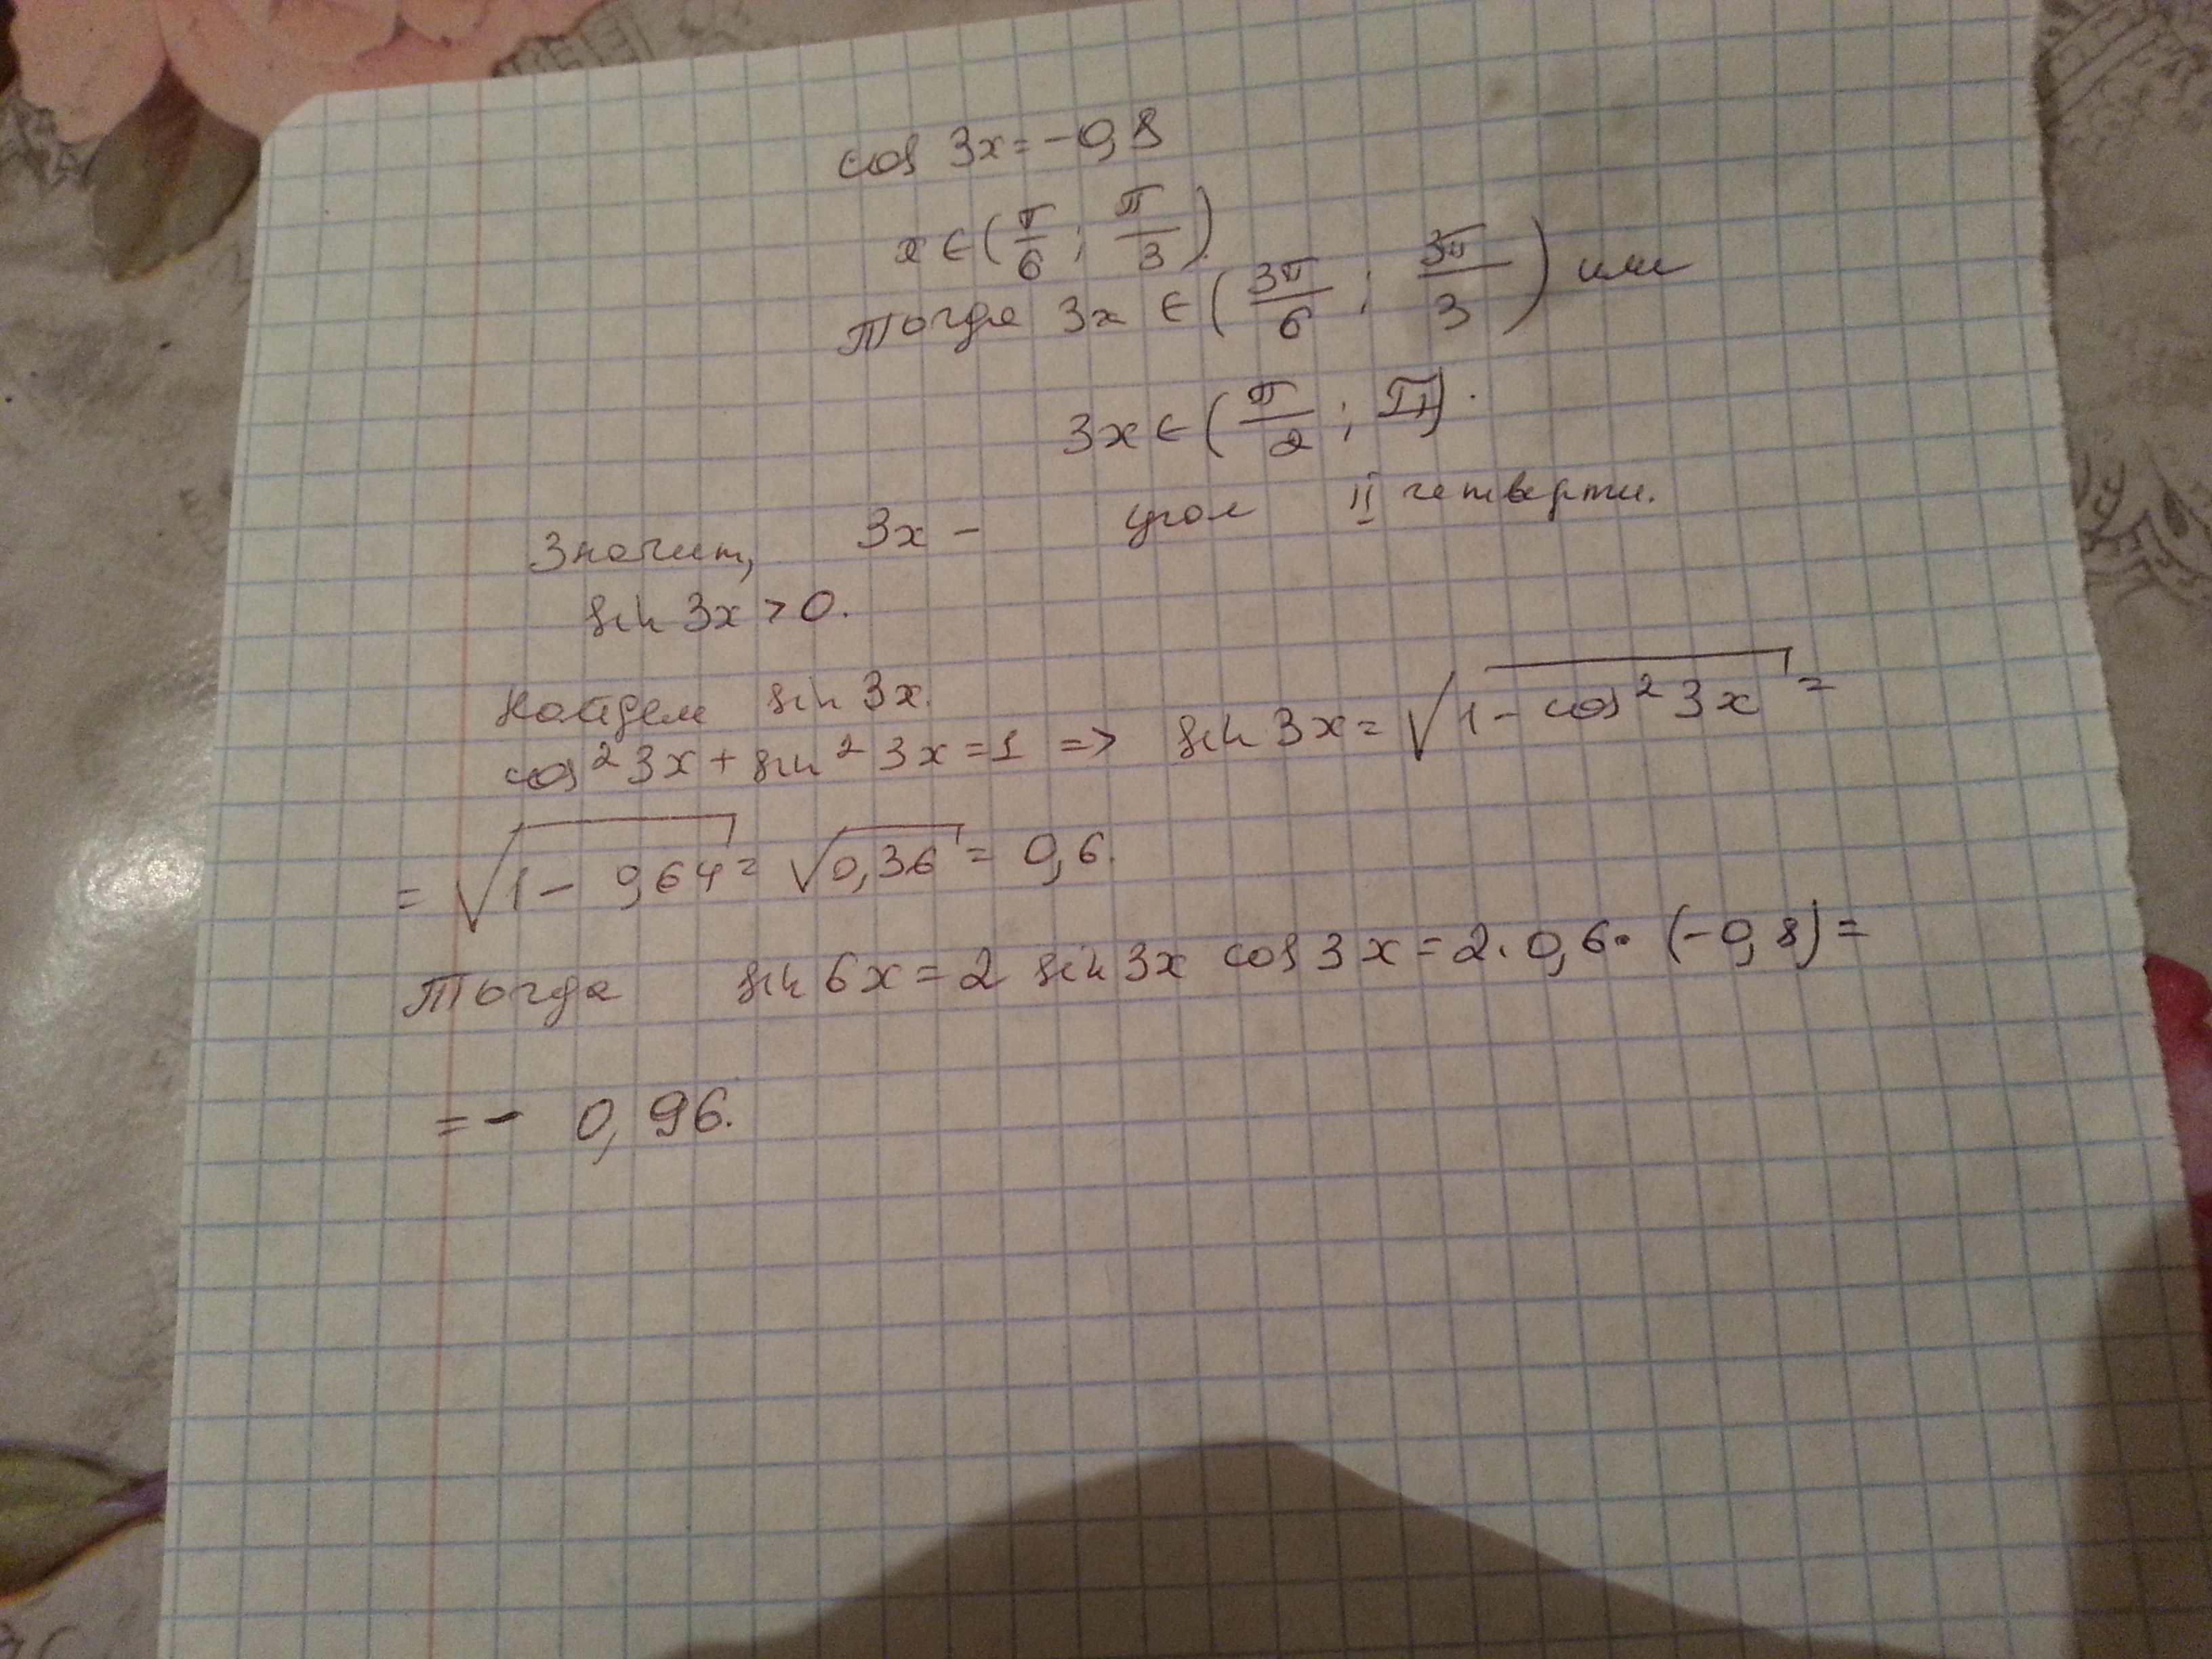 cos 3x = -0,8
x ∈ (π/6 ; π/3).
Тогда 3x ∈ (3π/6 ; 3π/3) или
3x ∈ (π/2 ; π).
Значит, 3x - угол II четверти.
sin 3x > 0.
Найдем sin 3x.
cos² 3x + sin² 3x = 1 => sin 3x = √(1 - cos² 3x) =
= √(1 - 0,64) = √0,36 = 0,6.
Тогда sin 6x = 2 sin 3x cos 3x = 2 · 0,6 · (-0,8) =
= - 0,96.